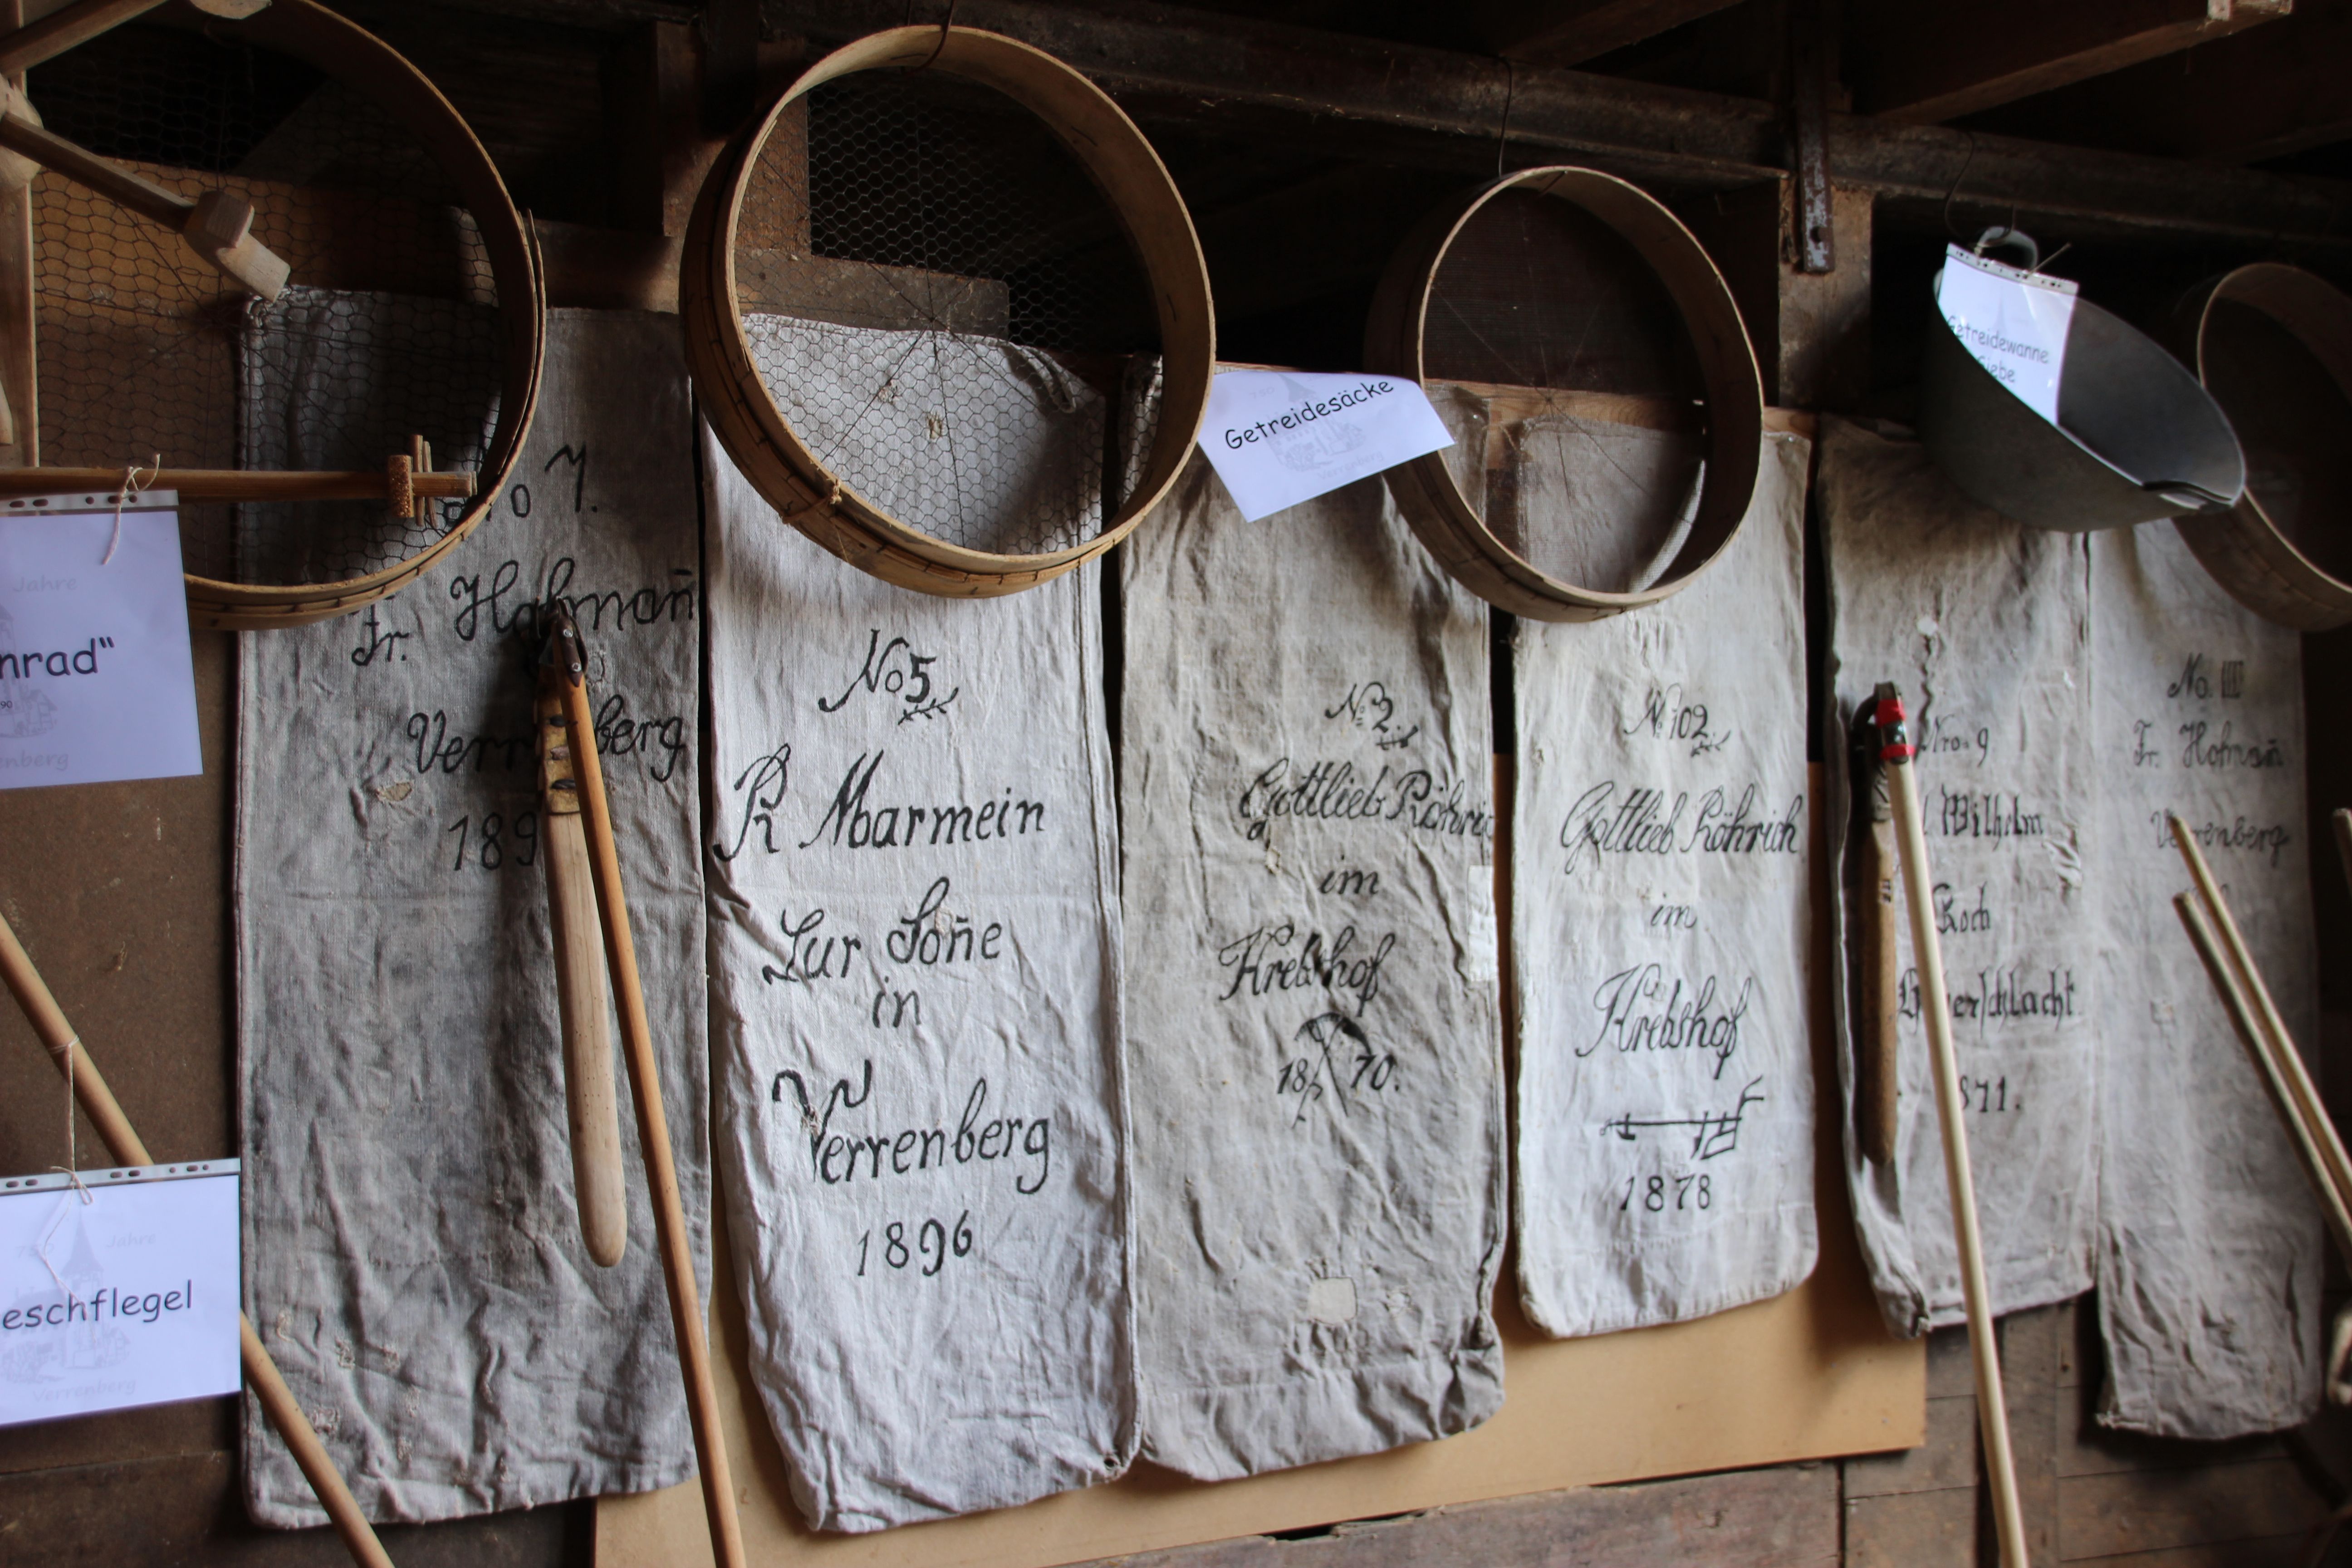 Jahre
nrad"
90
enberg
Jahre
eschflegel
Verrenberg
No 7.
Fr. Hofmañ
Verr berg
189
No 5
R Marmein
Zur Soñe
in
Verrenberg
1896
Getreidesäcke
Verrenberg
No 2.
Gottlieb Röhric
im
Krebshof
18 70.
No 102
Gottlieb Röhrich
im
Krebshof
1878
Getreidewanne
Siebe
Nro. 9
Wilhelm
Koch
erschlacht
871.
No. IIII
Fr. Hofmañ
Verrenberg